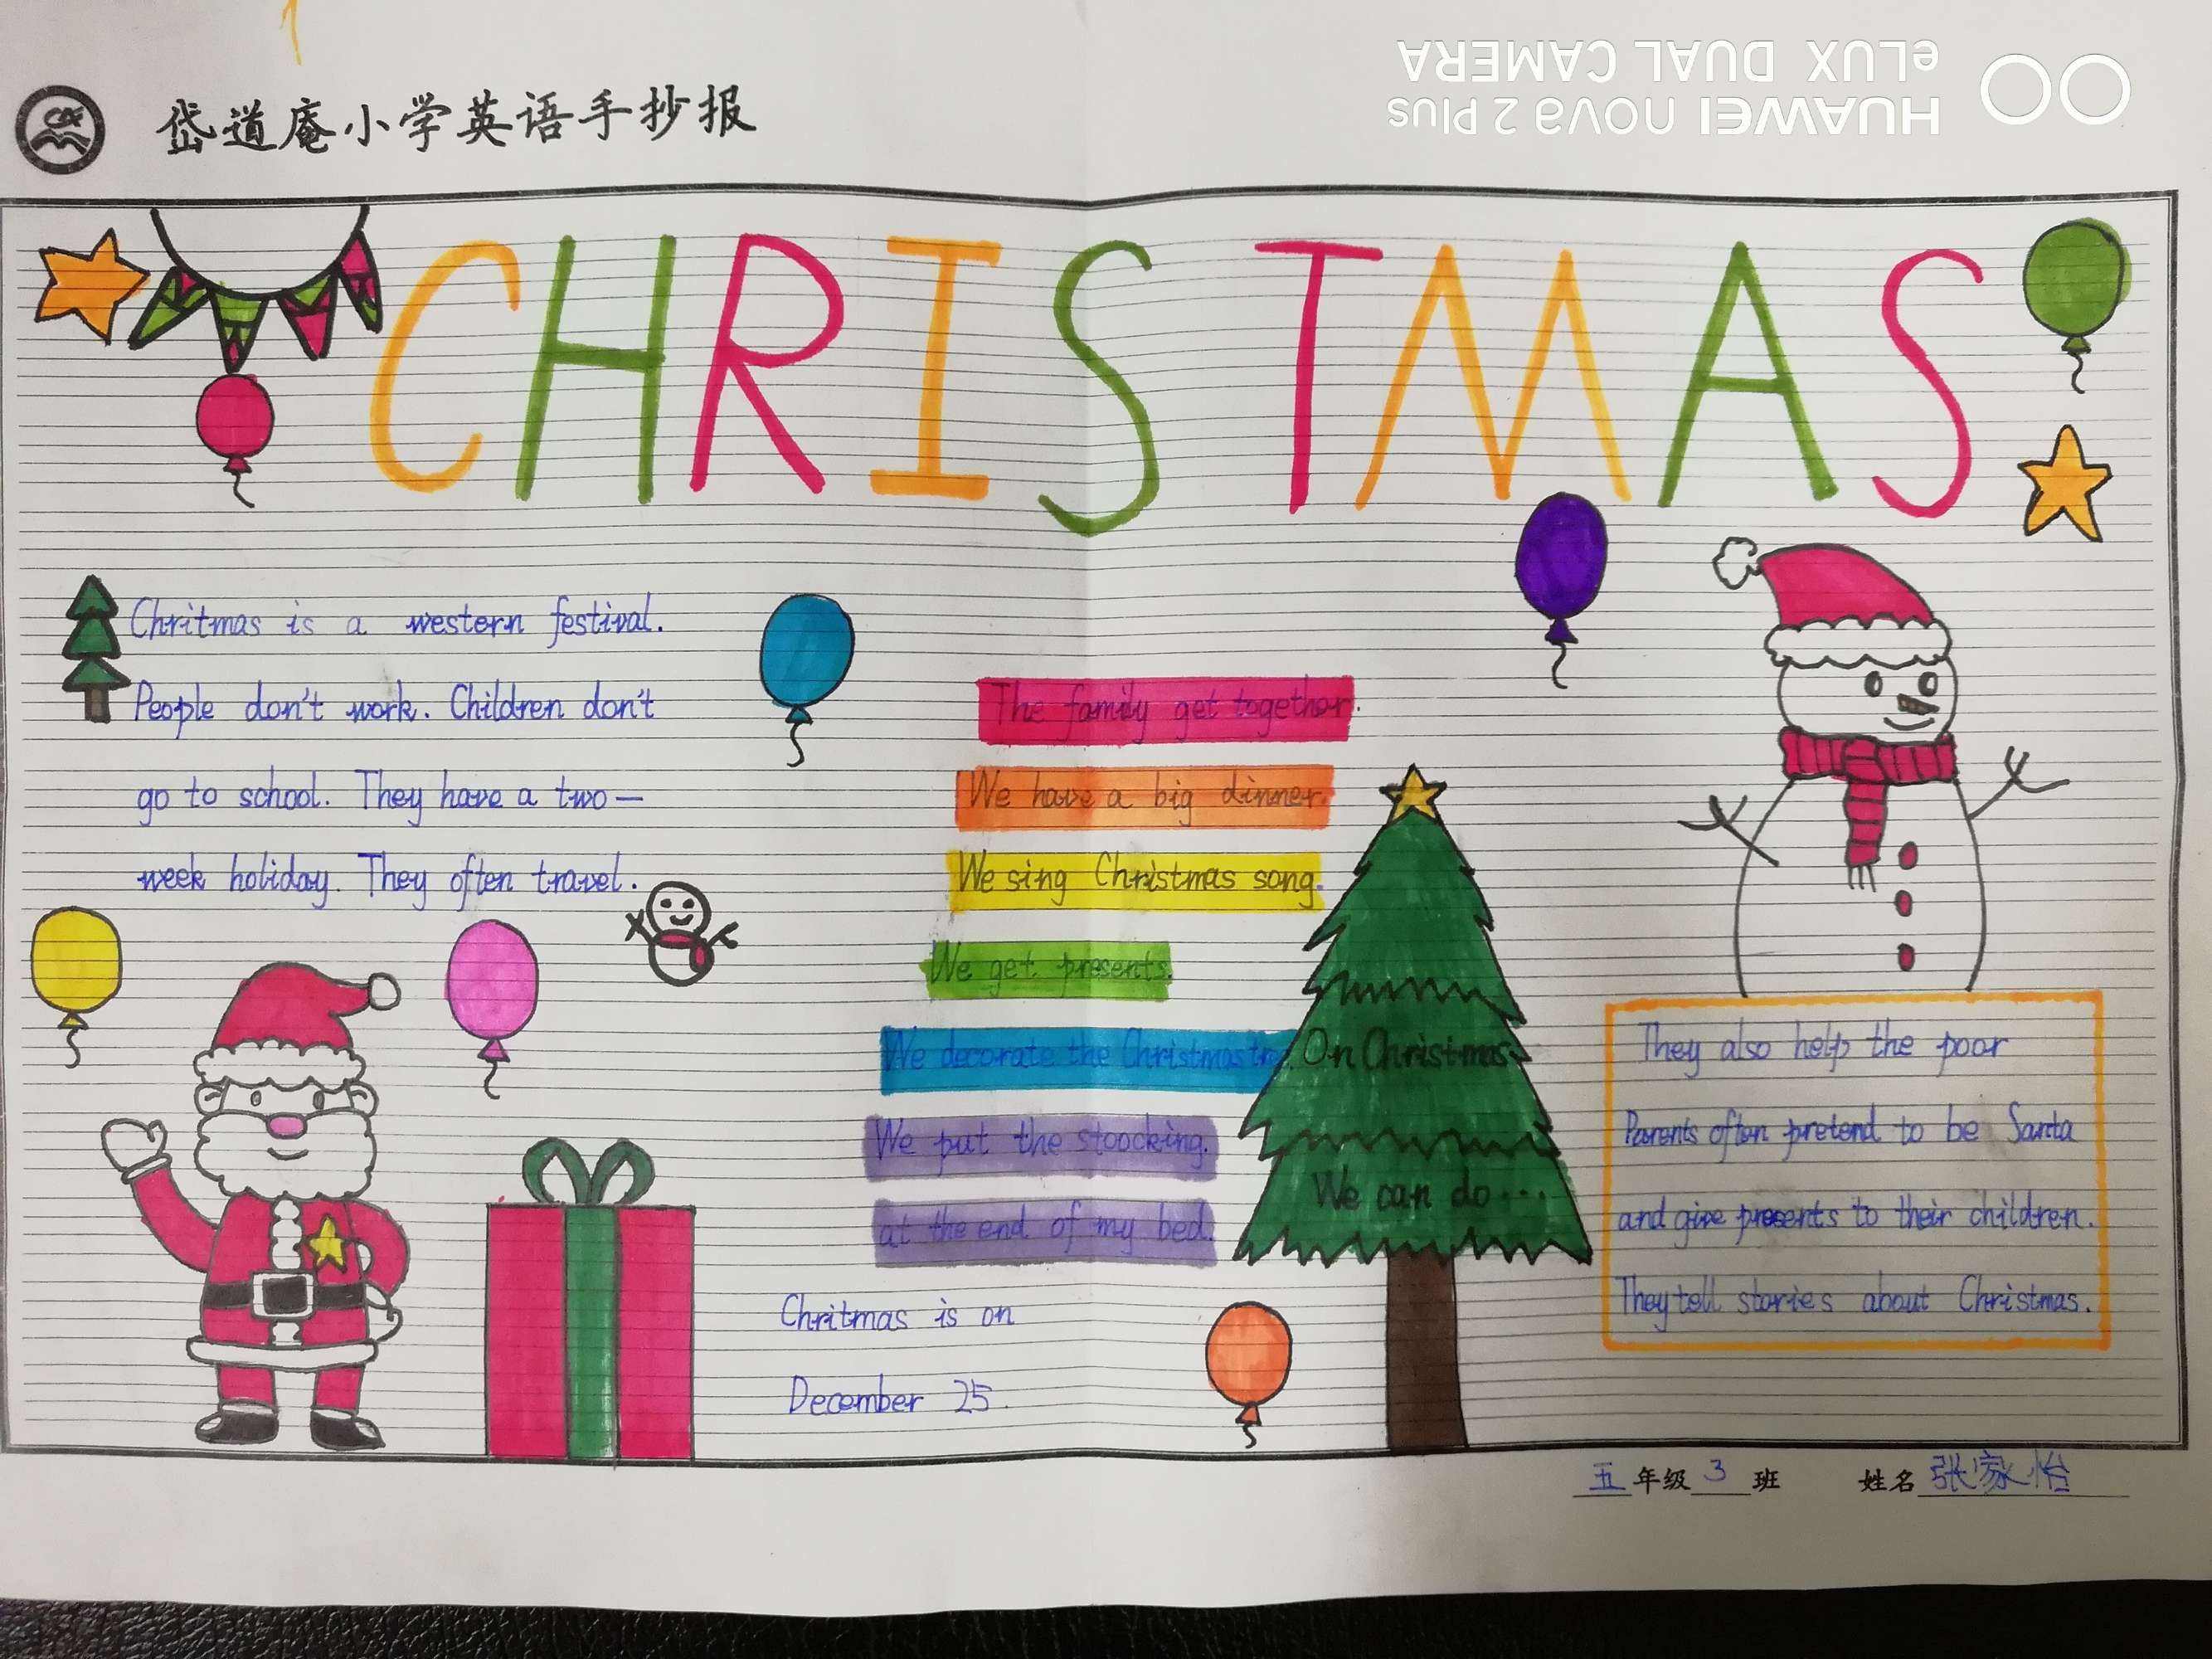 岱道庵小学英语手抄报
HUAWEI nova 2 Plus
eLUX DUAL CAMERA
CHRISTMAS
Chritmas is a western festival.
People don't work. Children don't
go to school. They have a two—
week holiday. They often travel.
The family get together.
We have a big dinner.
We sing Christmas song.
We get presents.
We decorate the Christmas tree.
We put the stoocking.
at the end of my bed.
On Christmas
We can do...
Chritmas is on
December 25.
They also help the poor
Parents often pretend to be Santa
and give presents to their children.
They tell stories about Christmas.
五年级 3 班 姓名 张家怡